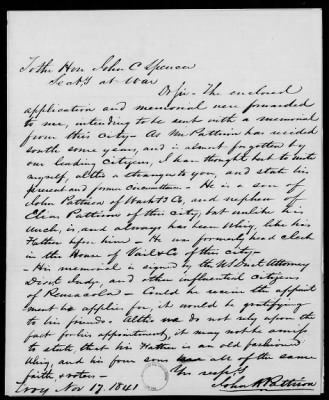 To the Hon John C Spencer
Sect'y at War
Dr Sir - The enclosed
application and memorial were forwarded
to me, intending to be sent with a memorial
from this city - As Mr Pattison has resided
south some years, and is almost forgotten by
our leading citizens, I have thought best to write
myself, altho a stranger to you, and state his
present and former connection - He is a son of
John Pattison of Co, and nephew of
Elias Pattison of this city, but unlike his
uncle, is and always has been Whig, like his
Father before him - He was formerly head clerk
in the House of Vail & Co of this city -
- His memorial is signed by the US Dist Attorney
Dist Judge, and other influential citizens
of Pensacola - Could he receive the appoint
ment he applies for, it would be gratifying
to his friends - Altho we do not rely upon the
fact for his appointment, it may not be amiss
to state that his Father is an old fashioned
Whig, and his four sons are all of the same
faith, voters -
Yrs resp'y
John Pattison
Troy Nov 17. 1841